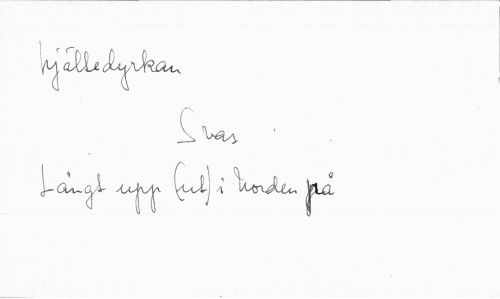 hjältedyrkan
Svar
Långt upp (ut) i Norden på